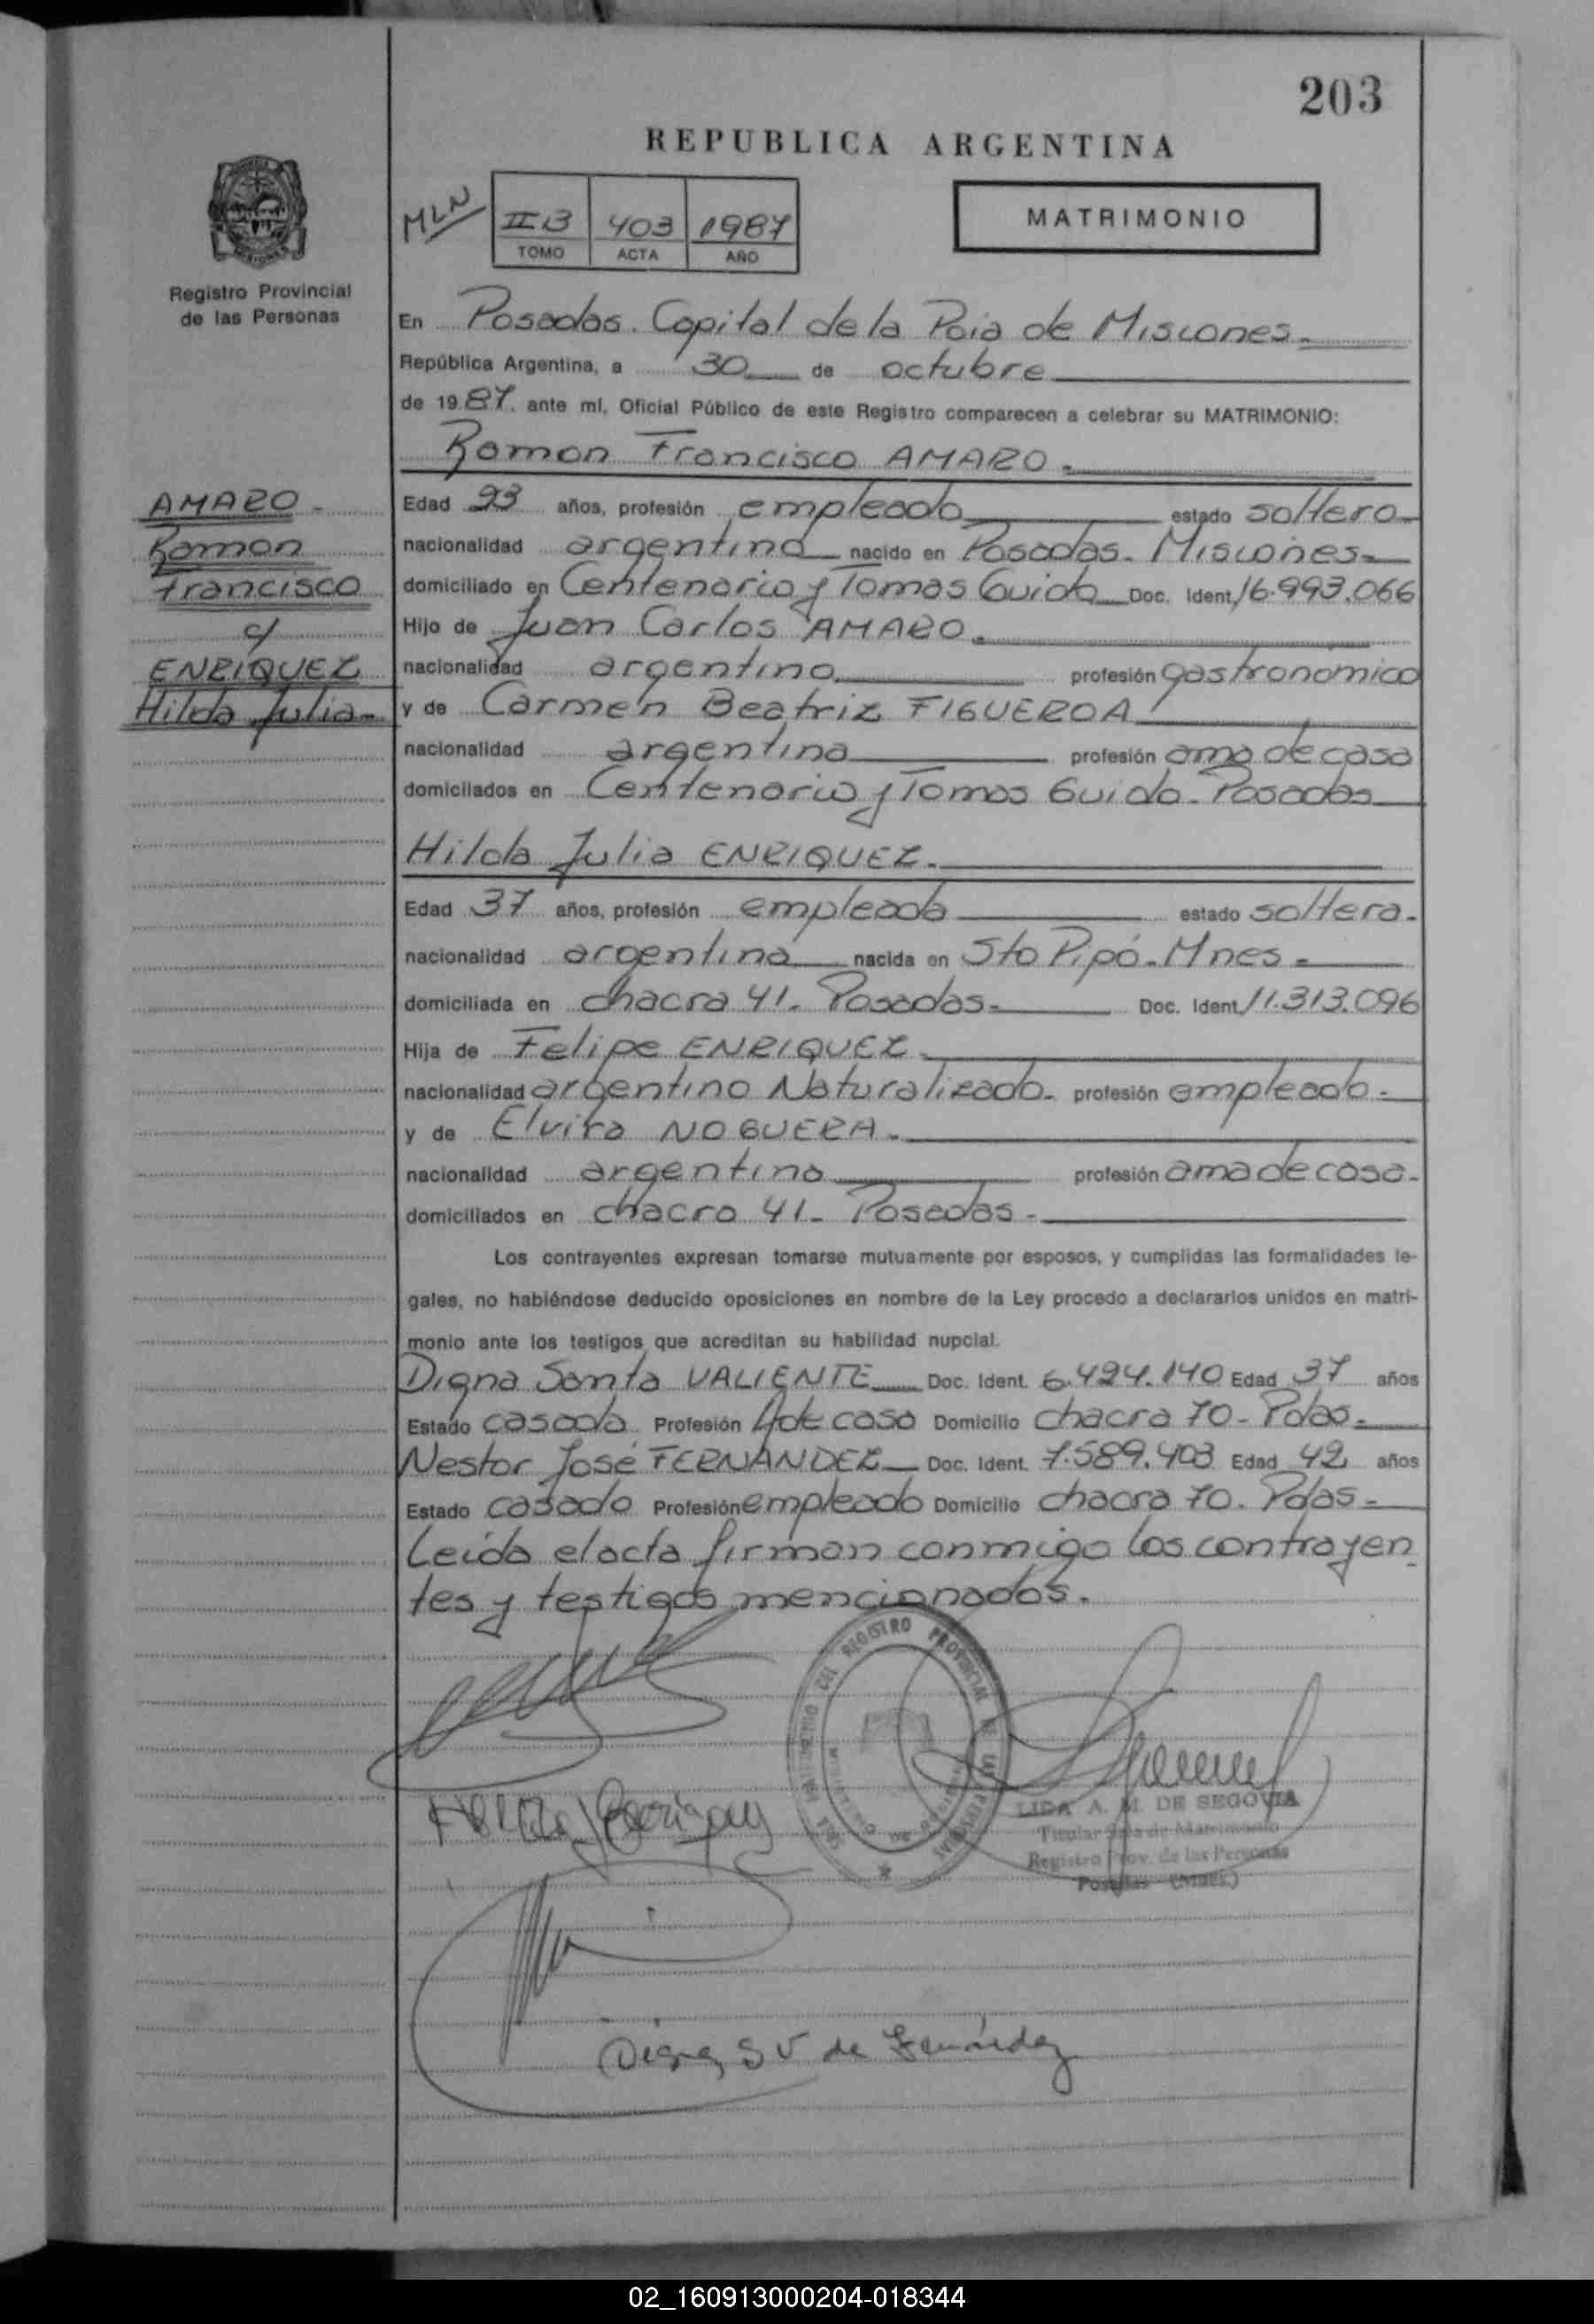 203
REPUBLICA ARGENTINA
MLN
II B 403 1987
TOMO ACTA AÑO
MATRIMONIO
Registro Provincial
de las Personas
En Posadas. Capital de la Pcia de Misiones.
República Argentina, a 30 de octubre
de 1987. ante mí, Oficial Público de este Registro comparecen a celebrar su MATRIMONIO:
Ramon Francisco AMARO.
AMARO -
Ramon
Francisco
c/
ENRIQUEZ
Hilda Julia-
Edad 23 años, profesión empleado estado soltero
nacionalidad argentina nacido en Posadas. Misiones-
domiciliado en Centenario y Tomas Guido Doc. Ident. 16.993.066
Hijo de Juan Carlos AMARO.
nacionalidad argentino profesión gastronómico
y de Carmen Beatriz FIGUEROA
nacionalidad argentina profesión ama de casa
domicilados en Centenario y Tomas Guido. Posadas
Hilda Julia ENRIQUEZ.
Edad 37 años, profesión empleada estado soltera.
nacionalidad argentina nacida en Sto Pipó. Mnes.
domiciliada en chacra 41. Posadas- Doc. Ident. 11.313.096
Hija de Felipe ENRIQUEZ
nacionalidad argentino Naturalizado. profesión empleado.
y de Elvira NOGUERA.
nacionalidad argentina profesión ama de casa.
domiciliados en chacra 41. Posadas.
Los contrayentes expresan tomarse mutuamente por esposos, y cumplidas las formalidades le-
gales, no habiéndose deducido oposiciones en nombre de la Ley procedo a declararlos unidos en matri-
monio ante los testigos que acreditan su habilidad nupcial.
Digna Santa VALIENTE Doc. Ident. 6.424.140 Edad 37 años
Estado casada Profesión A de casa Domicilio chacra 70. Pdas.
Nestor José FERNANDEZ Doc. Ident. 7.589.403 Edad 42 años
Estado casado Profesión empleado Domicilio chacra 70. Pdas-
Leida el acta firman conmigo los contrayen
tes y testigos mencionados.
DEL REGISTRO PROVINCIAL DE LAS PERSONAS
LIDA A. M. DE SEGOVIA
Titular Sala de Matrimonio
Registro Prov. de las Personas
Posadas (Mnes.)
Digna S V de Fernández
02_160913000204-018344